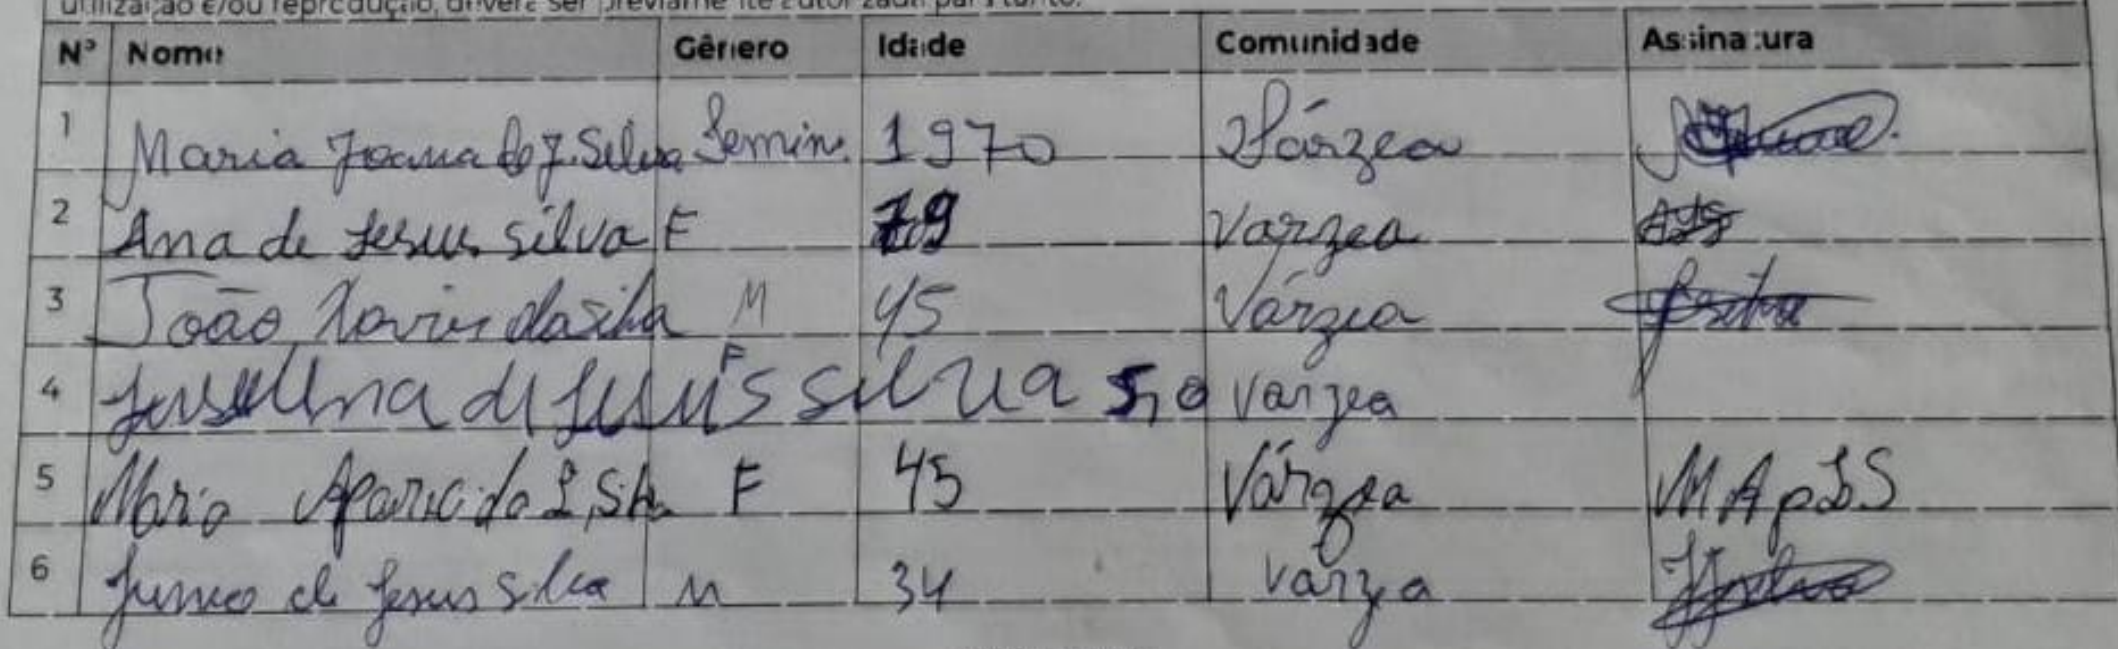 utilização e/ou reprodução, deverá ser previamente autorizada par tanto.
Nº Nome Gênero Idade Comunidade Assinatura
1 Maria Joana de J. Silva Femin. 1970 Várzea
2 Ana de Jesus silva F 79 Varzea
3 João Xavier da silva M 45 Várzea
4 de Jesus silva F 50 varzea
5 Maria Aparicida S, Silva F 45 Várzea MApSS
6 Junio de Jesus Silva M 34 varzea